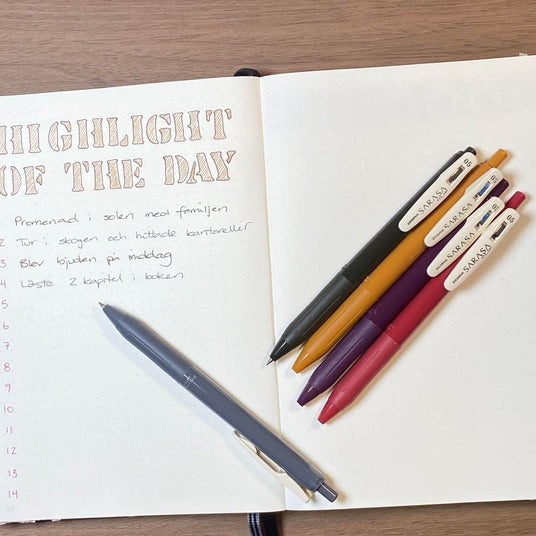 HIGHLIGHT
OF THE DAY
Promenad i solen med familjen
2 Tur i skogen och hittade kantareller
3 Blev bjuden på middag
4 Läste 2 kapitel i boken
5
6
7
8
9
10
11
12
13
14
ZEBRA SARASA 05
ZEBRA SARASA
ZEBRA SARASA
ZEBRA SARASA